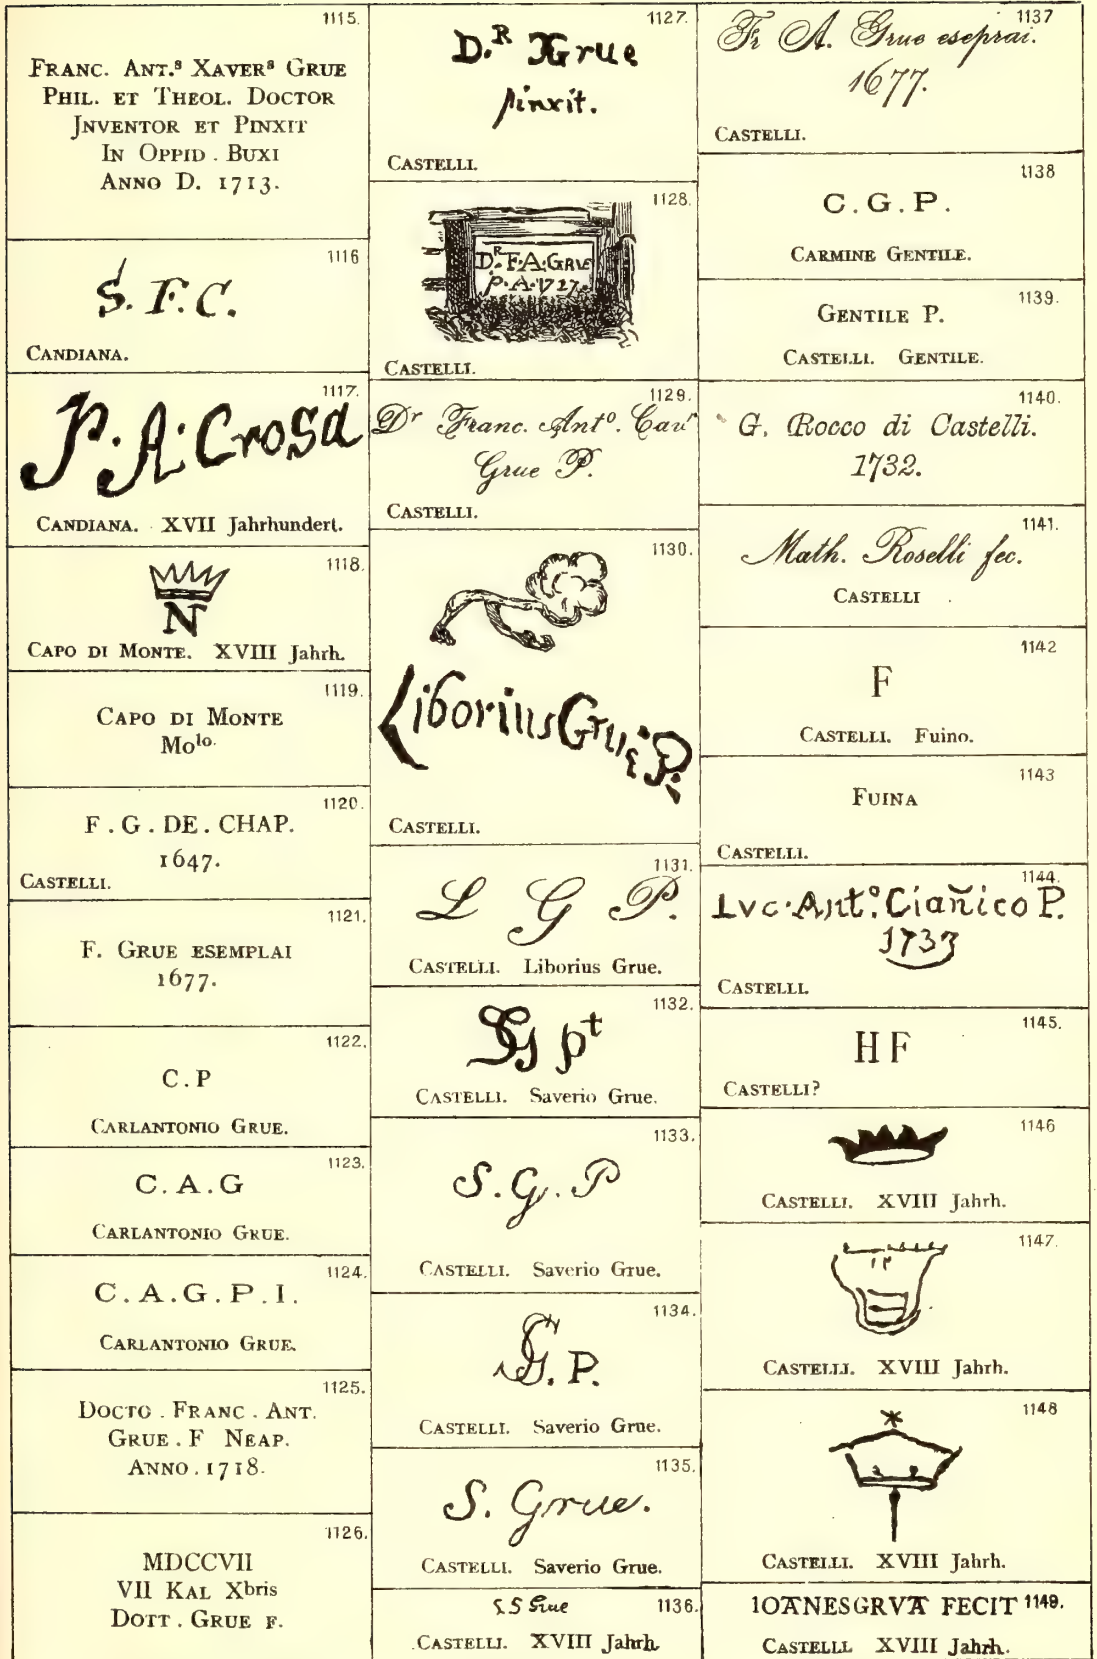 1115.
FRANC. ANT.ˢ XAVERˢ GRUE
PHIL. ET THEOL. DOCTOR
JNVENTOR ET PINXIT
IN OPPID . BUXI
ANNO D. 1713.
1116
S. F. C.
CANDIANA.
1117.
P. A: Crosa
CANDIANA. XVII Jahrhundert.
1118.
N
CAPO DI MONTE. XVIII Jahrh.
1119.
CAPO DI MONTE
Moˡᵒ.
1120.
F. G. DE. CHAP.
1647.
CASTELLI.
1121.
F. GRUE ESEMPLAI
1677.
1122.
C. P
CARLANTONIO GRUE.
1123.
C. A. G
CARLANTONIO GRUE.
1124.
C. A. G. P. I.
CARLANTONIO GRUE.
1125.
DOCTO . FRANC . ANT.
GRUE . F NEAP.
ANNO . 1718.
1126.
MDCCVII
VII KAL Xbris
DOTT . GRUE F.
1127.
D.ᴿ XGrue
pinxit.
CASTELLI.
1128.
Dᴿ. F. A. GRUE
P. A. 1727.
CASTELLI.
1129.
Dʳ Franc. Antº. Cavʳ
Grue P.
CASTELLI.
1130.
Liborius Grue P.
CASTELLI.
1131.
L G P.
CASTELLI. Liborius Grue.
1132.
SG pᵗ
CASTELLI. Saverio Grue.
1133.
S. G. P
CASTELLI. Saverio Grue.
1134.
SG. P.
CASTELLI. Saverio Grue.
1135.
S. Grue.
CASTELLI. Saverio Grue.
1136.
S S Grue
CASTELLI. XVIII Jahrh.
1137
Fr A. Grue eseprai.
1677.
CASTELLI.
1138
C. G. P.
CARMINE GENTILE.
1139.
GENTILE P.
CASTELLI. GENTILE.
1140.
G. Rocco di Castelli.
1732.
1141.
Math. Roselli fec.
CASTELLI
1142
F
CASTELLI. Fuino.
1143
FUINA
CASTELLI.
1144.
Lvc. Ant.º Ciañico P.
1733
CASTELLI.
1145.
H F
CASTELLI?
1146
CASTELLI. XVIII Jahrh.
1147.
CASTELLI. XVIII Jahrh.
1148
CASTELLI. XVIII Jahrh.
1149.
IOĀNES GRVĀ FECIT
CASTELLI. XVIII Jahrh.